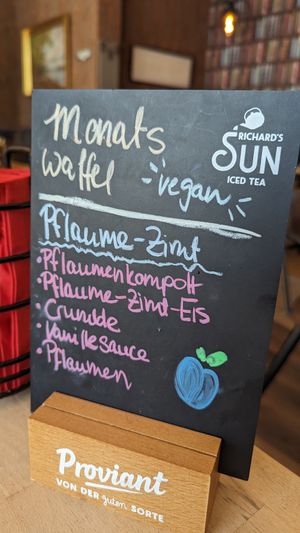 Monats
waffel
vegan
RICHARD'S
SUN
ICED TEA
Pflaume-Zimt
• Pflaumenkompott
• Pflaume-Zimt-Eis
• Crumble
• Vanillesauce
• Pflaumen
Proviant
VON DER guten SORTE